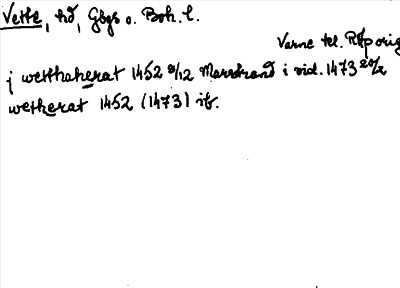 Vette, hd, Gbgs o. Boh. l.
Varne tel. RAp orig
j wetthaherat 1452 8/12 Marstrand i vid. 1473 20/2
wetherat 1452 (1473) ib.